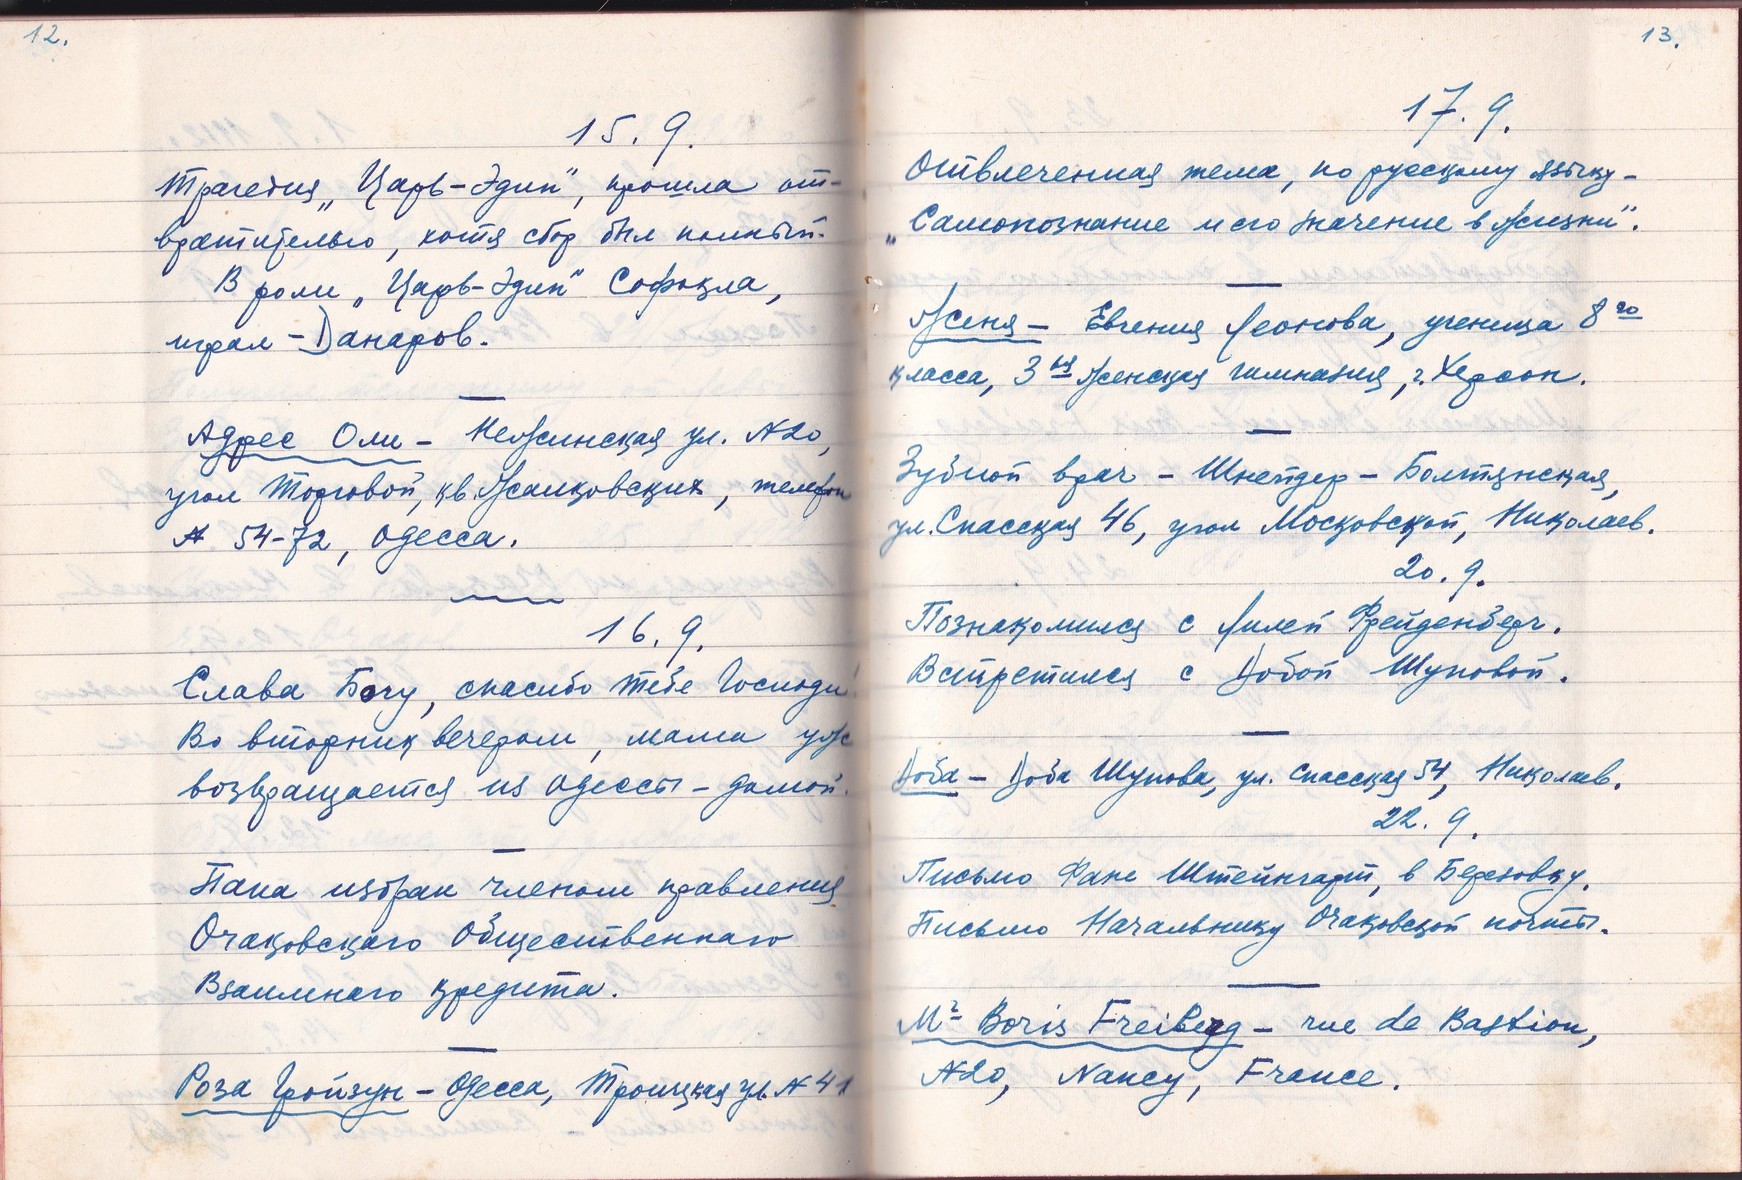 12.
15. 9.
Трагедия „Царь-Эдип", прошла от-
вратительно, хотя сбор был полный.
В роли „Царь-Эдип" Софокла,
играл - Данаров.
Адрес Оли - Нежинская ул. № 20,
угол Торговой, кв. Жалковских, телефон
№ 54-72, Одесса.
16. 9.
Слава Богу, спасибо тебе Господи!
Во вторник вечером, мама уже
возвращается из Одессы - домой.
Папа избран членом правления
Очаковскаго Общественнаго
Взаимнаго кредита.
Роза Гройзун - Одесса, Троицкая ул. № 41
13.
17. 9.
Отвлеченная тема, по русскому языку -
„Самопознание и его значение в жизни".
Женя - Евгения Леонова, ученица 8го
класса, 3ья Женская гимназия, г. Херсон.
Зубной врач - Шнейдер - Болтянская,
ул. Спасская 46, угол Московской, Николаев.
20. 9.
Познакомился с Лилей Фрейденберг.
Встретился с Добой Шуповой.
Доба - Доба Шупова, ул. Спасская 54, Николаев.
22. 9.
Письмо Фане Штейнгарт, в Березовку.
Письмо Начальнику Очаковской почты.
Mr Boris Freiberg - rue de Bastion,
№ 20, Nancy, France.